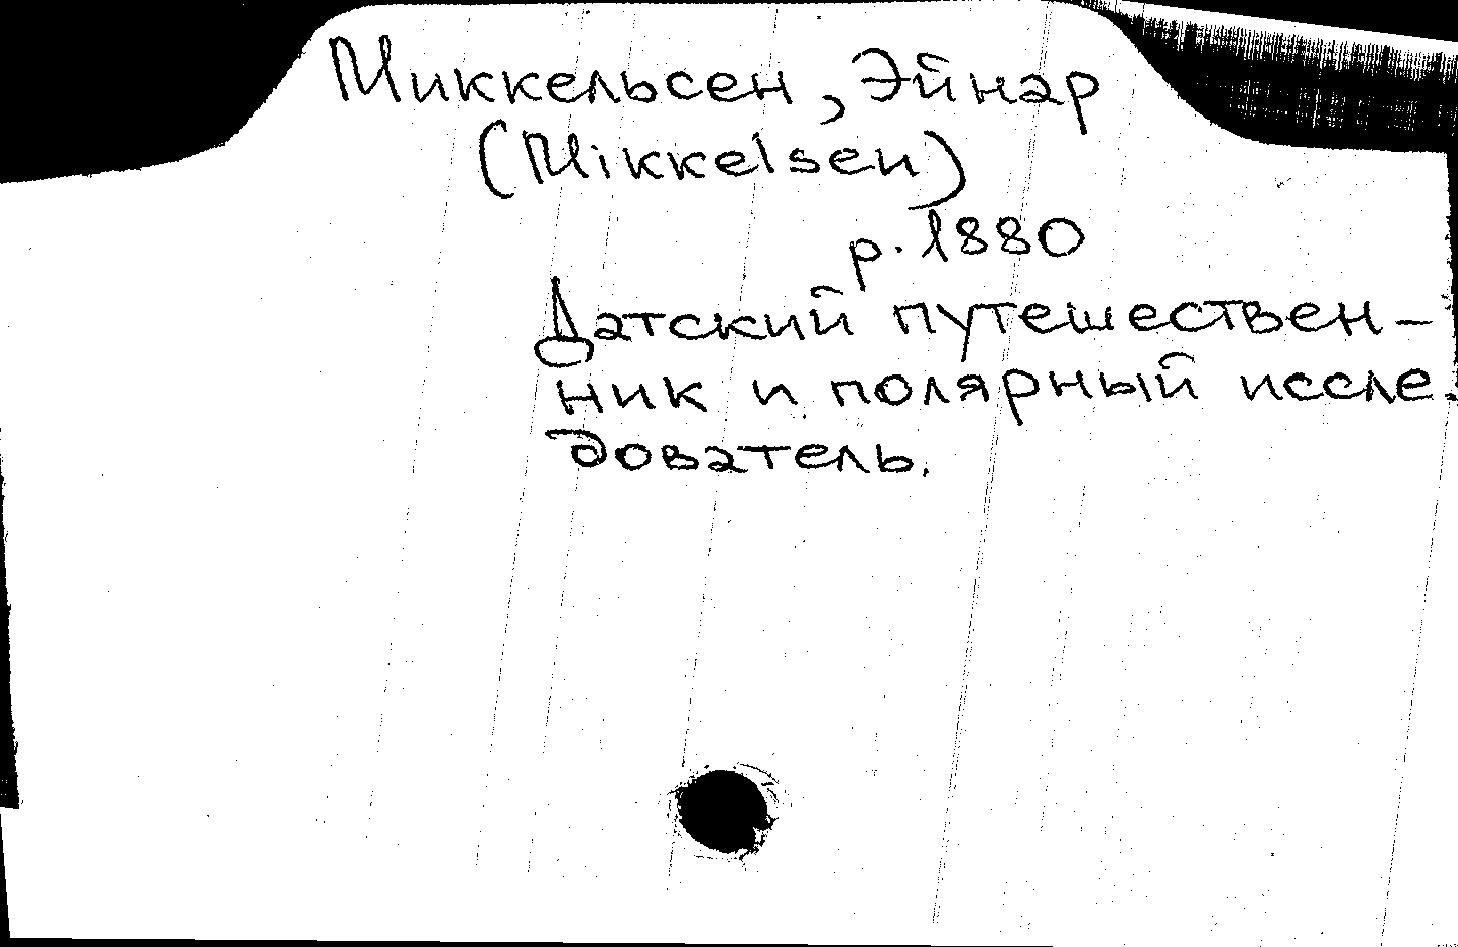 Миккельсен, Эйнар
(Mikkelsen)
р. 1880
Датский путешествен-
ник и полярный иссле-
дователь.